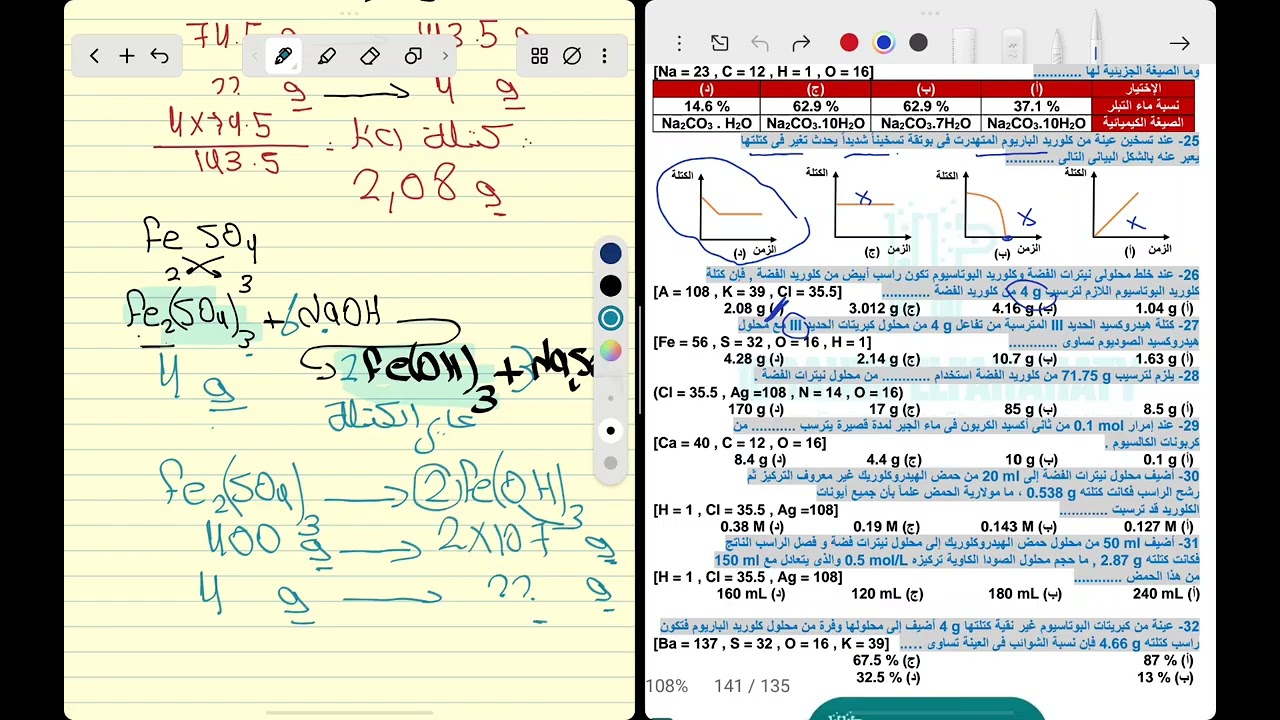 74.5 g 143.5 g
?? g → 4 g
4×74.5 / 143.5 = KCl كتلة ∴
2,08 g
Fe SO4
2 3
Fe2(SO4)3 + 6NaOH
2Fe(OH)3 + 3
4 g
Fe2(SO4)3 → 2Fe(OH)3
400 g → 2×107 g
4 g → ?? g
وما الصيغة الجزيئية لها ............ [Na = 23 , C = 12 , H = 1 , O = 16]
الإختيار (أ) (ب) (ج) (د)
نسبة ماء التبلر 37.1 % 62.9 % 62.9 % 14.6 %
الصيغة الكيميائية Na2CO3.10H2O Na2CO3.7H2O Na2CO3.10H2O Na2CO3 . H2O
25- عند تسخين عينة من كلوريد الباريوم المتهدرت فى بوتقة تسخيناً شديداً يحدث تغير فى كتلتها
يعبر عنه بالشكل البيانى التالى ............
الكتلة الكتلة الكتلة الكتلة
x x x
الزمن الزمن الزمن الزمن
(أ) (ب) (ج) (د)
26- عند خلط محلولى نيترات الفضة وكلوريد البوتاسيوم تكون راسب أبيض من كلوريد الفضة , فإن كتلة
كلوريد البوتاسيوم اللازم لترسيب 4 g من كلوريد الفضة ............ [A = 108 , K = 39 , Cl = 35.5]
(أ) 1.04 g (ب) 4.16 g (ج) 3.012 g (د) 2.08 g
27- كتلة هيدروكسيد الحديد III المترسبة من تفاعل 4 g من محلول كبريتات الحديد III مع محلول
هيدروكسيد الصوديوم تساوى ............ [Fe = 56 , S = 32 , O = 16 , H = 1]
(أ) 1.63 g (ب) 10.7 g (ج) 2.14 g (د) 4.28 g
28- يلزم لترسيب 71.75 g من كلوريد الفضة استخدام ............ من محلول نيترات الفضة .
(Cl = 35.5 , Ag =108 , N = 14 , O = 16)
(أ) 8.5 g (ب) 85 g (ج) 17 g (د) 170 g
29- عند إمرار 0.1 mol من ثانى أكسيد الكربون فى ماء الجير لمدة قصيرة يترسب ........... من
كربونات الكالسيوم . [Ca = 40 , C = 12 , O = 16]
(أ) 0.1 g (ب) 10 g (ج) 4.4 g (د) 8.4 g
30- أضيف محلول نيترات الفضة إلى 20 ml من حمض الهيدروكلوريك غير معروف التركيز ثم
رشح الراسب فكانت كتلته 0.538 g ، ما مولارية الحمض علماً بأن جميع أيونات
الكلوريد قد ترسبت ............ [H = 1 , Cl = 35.5 , Ag =108]
(أ) 0.127 M (ب) 0.143 M (ج) 0.19 M (د) 0.38 M
31- أضيف 50 ml من محلول حمض الهيدروكلوريك إلى محلول نيترات فضة و فصل الراسب الناتج
فكانت كتلته 2.87 g , ما حجم محلول الصودا الكاوية تركيزه 0.5 mol/L والذى يتعادل مع 150 ml
من هذا الحمض ............ [H = 1 , Cl = 35.5 , Ag = 108]
(أ) 240 mL (ب) 180 mL (ج) 120 mL (د) 160 mL
32- عينة من كبريتات البوتاسيوم غير نقية كتلتها 4 g أضيف إلى محلولها وفرة من محلول كلوريد الباريوم فتكون
راسب كتلته 4.66 g فإن نسبة الشوائب فى العينة تساوى ..... [Ba = 137 , S = 32 , O = 16 , K = 39]
(أ) 87 % (ج) 67.5 %
(ب) 13 % (د) 32.5 %
108% 141 / 135